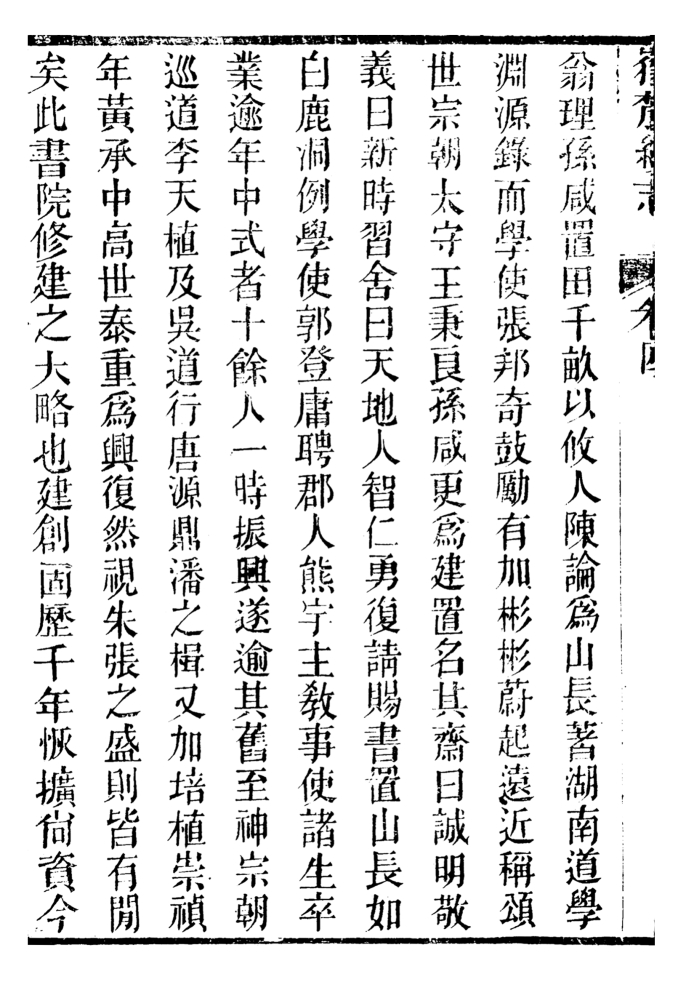 嶽麓續志 卷四
翁理孫咸置田千畝以攸人陳論爲山長著湖南道學
淵源錄而學使張邦奇鼓勵有加彬彬蔚起遠近稱頌
世宗朝太守王秉良孫咸更爲建置名其齋曰誠明敬
義日新時習舍曰天地人智仁勇復請賜書置山長如
白鹿洞例學使郭登庸聘郡人熊宇主教事使諸生卒
業逾年中式者十餘人一時振興遂逾其舊至神宗朝
巡道李天植及吳道行唐源鼎潘之楫又加培植崇禎
年黃承中高世泰重爲興復然視朱張之盛則皆有閒
矣此書院修建之大略也建創固歷千年恢擴尙資今